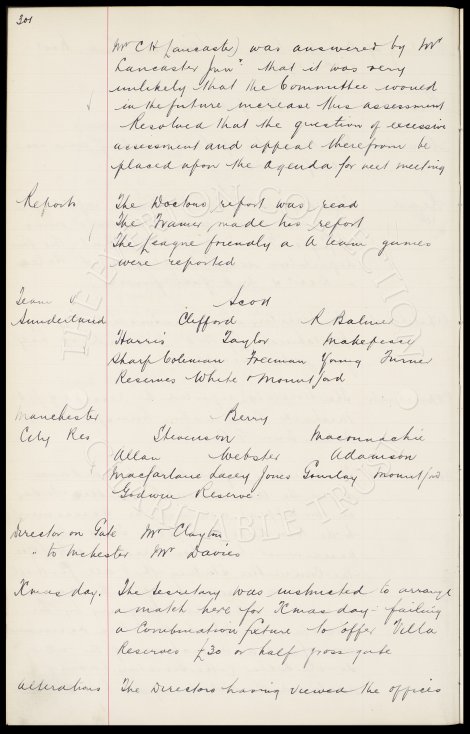 301
Mr C H Lancaster) was answered by Mr
Lancaster Junr. that it was very
unlikely that the Committee would
in the future increase this assessment
Resolved that the question of excessive
assessment and appeal therefrom be
placed upon the agenda for next meeting
Reports The Doctors report was read
The Trainer made his report
The League friendly & A team games
were reported
Team v Scott
Sunderland Clifford R Balmer
Harris Taylor Makepeace
Sharp Coleman Freeman Young Turner
Reserves White & Mountford
Manchester Berry
City Res Stevenson Maconnachie
Allan Webster Adamson
Macfarlane Lacey Jones Gourlay Mount/rd
Godwin Reserve
Director on Gate Mr Clayton
" to Mchester Mr Davies
Xmas day. The Secretary was instructed to arrange
a match here for Xmas day - failing
a Combination fixture to offer Villa
Reserves £30 or half gross gate
Alterations The Directors having viewed the offices
THE EVERTON COLLECTION
CHARITABLE TRUST